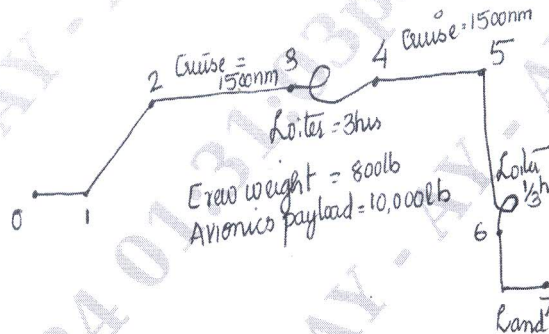 Cruise = 1500nm
2 Cruise = 3 4 5
1500nm
Loiter = 3hrs
Crew weight = 800lb
Avionics payload = 10,000lb
Loiter
1/3 h
0 1 6
Land